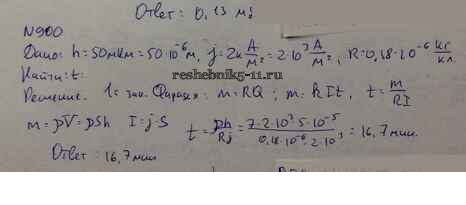 Ответ: 0,13 мг
N900
Дано: h=50мкм=50·10⁻⁶м, j=2к А/м² = 2·10³ А/м², R=0,18·10⁻⁶ кг/кл
Найти: t.
reshebnik5-11.ru
Решение. 1= зак. Фарадея: m=RQ; m=kIt, t= m/RI
m=ρV=ρSh I=j·S t= ρh/Rj = 7·2·10³·5·10⁻⁵/0,18·10⁻⁶·2·10³ = 16,7 мин.
Ответ: 16,7 мин